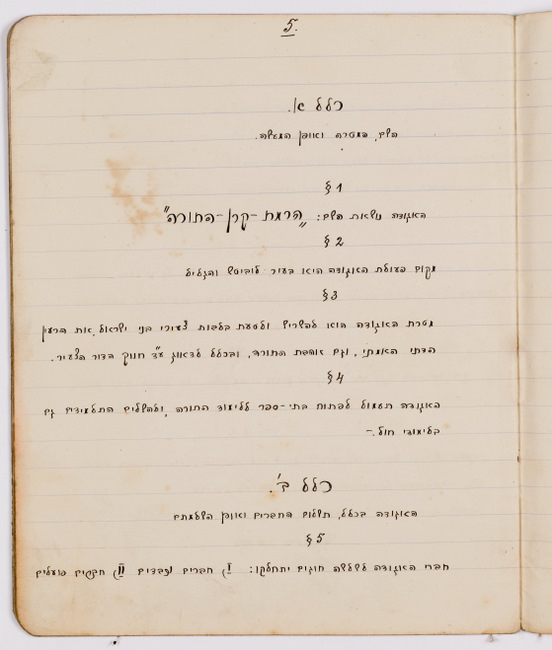 5.
כלל א'.
השם, המטרה ואופן המעשה.
§ 1
האגודה נושאת השם: "הרמת-קרן-התורה"
§ 2
מקום פעולת האגודה היא בעיר לוביטש והגליל
§ 3
מטרת האגודה הוא להשריש ולטעת בלבות צעירי בני ישראל, את הרעין
הדתי האמתי, וגם אהבת התורה, ובכלל לדאוג ע"ד חנוך הדור הצעיר.
§ 4
האגודה תעמול לפתוח בתי-ספר ללימוד התורה, ולהשלים התלמידים גם
בלימודי חול.-
כלל ב'.
האגודה בכלל, תשלום החברים ואופן השלמתם
§ 5
חברי האגודה לשלשה חוגים יתחלקו: I) חברים נכבדים II) חברים פועלים